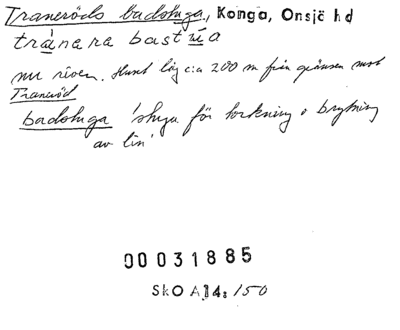 Traneröds badstuga, Konga, Onsjö hd
tránara bastúa
nu riven. Huset låg c:a 200 m från gränsen mot
Traneröd
badstuga 'stuga för torkning o brytning
av lin'
00031885
SkO A14: 150